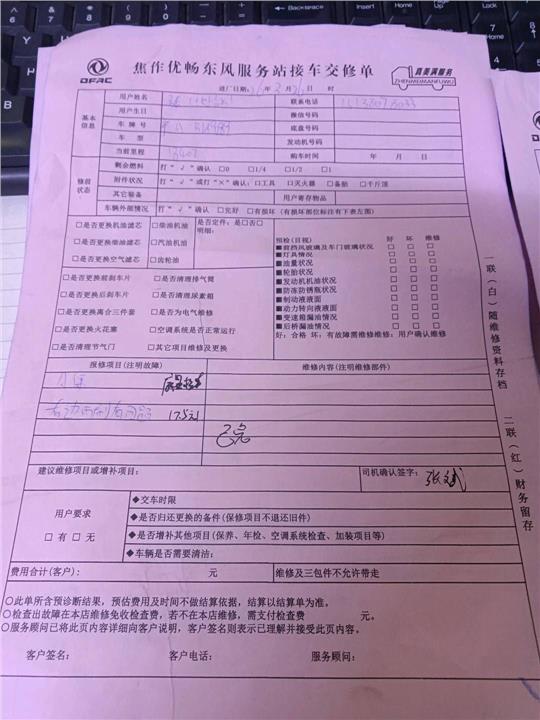 DFAC
焦作优畅东风服务站接车交修单
真美满服务
ZHENMEIMANFUWU
进厂日期: 年 月 日 时
基本信息
用户姓名 联系电话
用户生日 微信号码
车牌号 底盘号码
车型 发动机号码
当前里程 购车时间 年 月 日
修前状态
剩余燃料 打“√”确认 □0 □1/4 □1/2 □1
附件状况 打“√”或打“×”确认:□工具 □灭火器 □备胎 □千斤顶
其它装备 用户寄存物品
车辆外部情况 打“√”确认 □完好 □有损坏(有损坏部位标注有下表左图)
□是否更换机油滤芯 □柴油机油 是否定件:是□否□
明细:
□是否更换柴油滤芯 □汽油机油
□是否更换空气滤芯 □齿轮油
□是否更换前刹车片 □是否清理排气筒
□是否更换后刹车片 □是否清理尿素箱
□是否更换离合三件套 □是否为电气维修
□是否更换火花塞 □空调系统是否正常运行
□是否清理节气门 □其它项目维修及更换
预检(目视) 好 坏 维修
■前挡风玻璃及车门玻璃状况 □ □ □
■灯具情况 □ □ □
■油量状况 □ □ □
■轮胎状况 □ □ □
■发动机机油状况 □ □ □
■防冻防锈瓶状况 □ □ □
■制动液液面 □ □ □
■动力转向液液面 □ □ □
■变速箱漏油情况 □ □ □
■后桥漏油情况 □ □ □
好:合格 坏:有故障需维修维修:用户确认维修
报修项目(注明故障) 维修内容(注明维修部件)
175元
建议维修项目或增补项目: 司机确认签字:
用户要求
□有 □无
◆交车时限
◆是否归还更换的备件(保修项目不退还旧件)
◆是否增补其他项目(保养、年检、空调系统检查、加装项目等)
◆车辆是否需要清洁:
费用合计(客户): 元 维修及三包件不允许带走
○此单所含预诊断结果,预估费用及时间不做结算依据,结算以结算单为准。
○检查出故障在本店维修免收检查费,若不在本店维修,需支付检查费 元。
○服务顾问已将此页内容详细向客户说明,客户签名则表示已理解并接受此页内容。
客户签名: 客户电话: 服务顾问:
一联(白)随维修资料存档
二联(红)财务留存